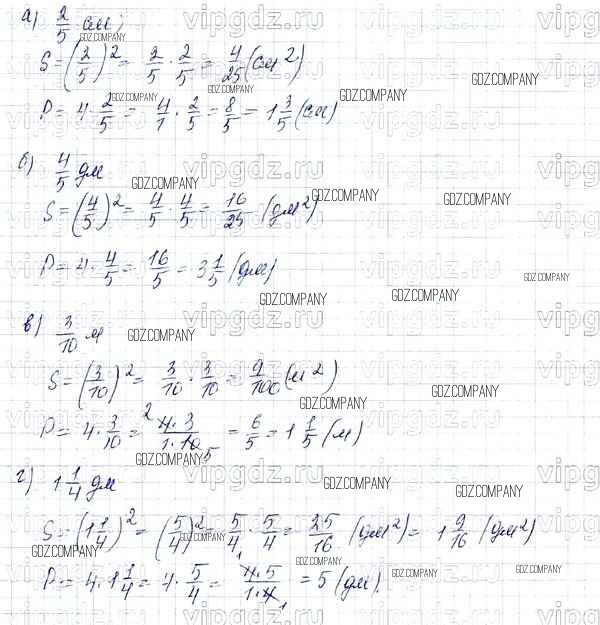 а) 2/5 см;
S = (2/5)² = 2/5 · 2/5 = 4/25 (см²)
P = 4 · 2/5 = 4/1 · 2/5 = 8/5 = 1 3/5 (см)
б) 4/5 дм
S = (4/5)² = 4/5 · 4/5 = 16/25 (дм²)
P = 4 · 4/5 = 16/5 = 3 1/5 (дм)
в) 3/10 м
S = (3/10)² = 3/10 · 3/10 = 9/100 (м²)
P = 4 · 3/10 = ²4·3/1·10₅ = 6/5 = 1 1/5 (м)
г) 1 1/4 дм
S = (1 1/4)² = (5/4)² = 5/4 · 5/4 = 25/16 (дм²) = 1 9/16 (дм²)
P = 4 · 1 1/4 = 4 · 5/4 = ¹4·5/1·4₁ = 5 (дм).
GDZ.COMPANY
vipgdz.ru